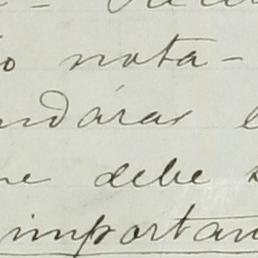 o nota-
ndáras e
ne debe
importan